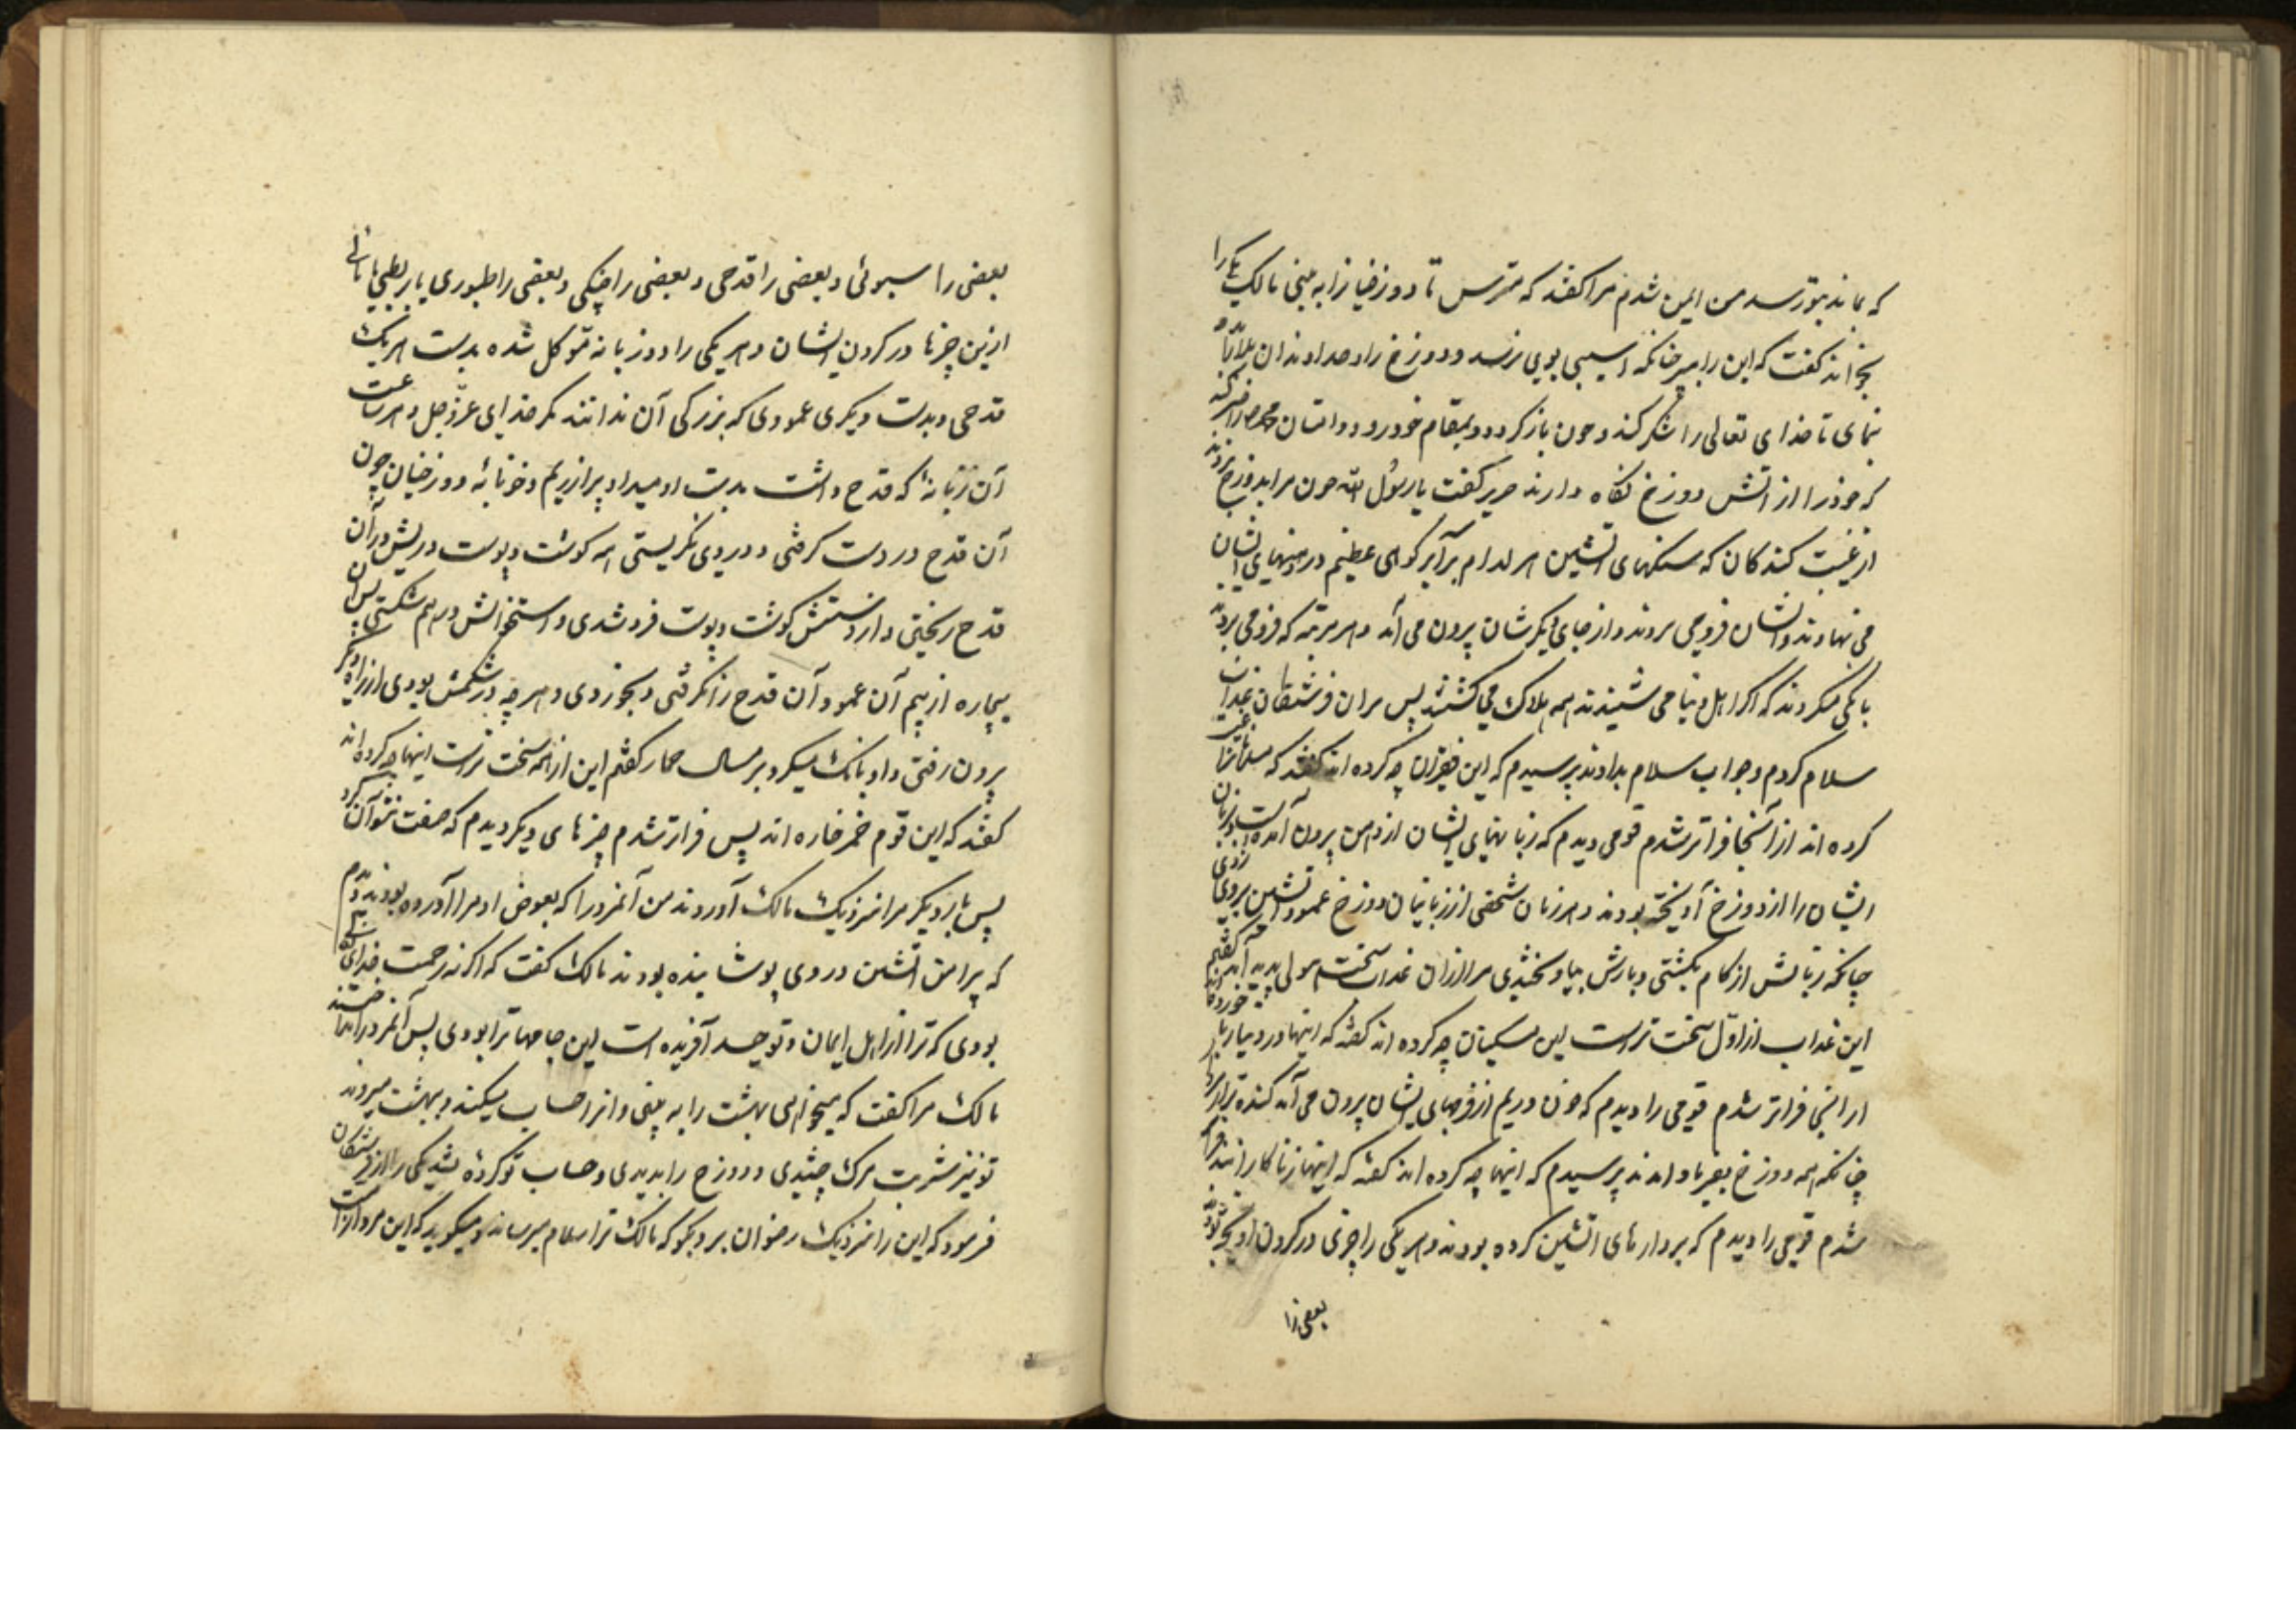 که بماند بتو رسد من ایمن شدم مرا کفتند که مترس تا دوزخیانرا به بینی مالک یکی را
بخواند کفت که این را ببر چنانکه آسیبی بوی نرسد و دوزخ را و صداوندان بلا را باو
نمای تا خدای تعالی را شکر کند و چون باز کردد و بمقام خود رود دوستان محمد را خبر کند
که خود را از آتش دوزخ نکاه دارند جریر کفت یا رسول الله چون مرا بدوزخ بردند
از غیبت کنندکان که سنکهای آتشین هر کدام برابر کوهی عظیم در دهنهای ایشان
می نهادند و ایشان فرو می بردند و از جای دیکرشان بیرون می آمد و هر مرتبه که فرو می بردند
بانکی میکردند که اکر اهل دنیا می شنیدند همه هلاک می کشتند پس بران فرشتکان عذاب
سلام کردم و جواب سلام بدادند پرسیدم که این فقیران چه کرده اند کفتند که مسلمانانرا غیبت
کرده اند از آنجا فراتر شدم قومی دیدم که زبانهای ایشان از دهن بیرون آمده است و بزبان
ایشان را از دوزخ آویخته بودند و هر زمان شخصی از زبانیان دوزخ عمود آتشین بروی زدی
چنانکه زبانش از کام بکشتی و بازش بیاویختندی مرا ازان عذاب سخت هولی پدید آمد کفتم
این عذاب از اول سخت تر است این مسکینان چه کرده اند کفتند که اینها در دنیا ربا خورده اند
از انجا فراتر شدم قومی را دیدم که خون و ریم از فرجهای ایشان بیرون می آمد کنده تر از
چنانکه همه دوزخ بفریاد آمدند پرسیدم که اینها چه کرده اند کفتند که اینها زناکارانند فراتر
شدم قومی را دیدم که بر دارهای آتشین کرده بودند و هر یکی را چیزی در کردن آویخته بودند
بعضی را
بعضی را سبوئی و بعضی را قدحی و بعضی را چنکی و بعضی را طنبوری یا بربطی یا نائی
ازین چیزها در کردن ایشان و هر یکی را دو زبانه موکل شده بدست هر یک
قدحی و بدست دیکری عمودی که بزرکی آن ندانند مکر خدای عزوجل و هر ساعت
آن زبانۀ که قدح داشت بدست او میداد پر از ریم و خونابۀ دوزخیان چون
آن قدح در دست کرفتی و در وی نکریستی همه کوشت و پوست رویش در آن
قدح ریختی و از دستش کوشت و پوست فرو شدی و استخوانش در هم شکستی پس آن
بیچاره از بیم آن عمود آن قدح را نکرفتی و بخوردی و هر چه در شکمش بودی از راه دیکر
بیرون رفتی و او بانک میکرد بر مثال حمار کفتم این از همه سخت تر است اینها چه کرده اند
کفتند که این قوم خمر خاره اند پس فراتر شدم چیزهای دیکر دیدم که صفت نتوان کرد
پس بار دیکر مرا نزدیک مالک آوردند من آنمرد را که بعوض او مرا آورده بودند دیدم
که پیراهن آتشین در وی پوشانیده بودند مالک کفت که اکر نه رحمت خدای
بودی که ترا از اهل ایمان و توحید آفریده است این جامها ترا بودی پس آنمرد را
مالک مرا کفت که میخواهی بهشت را به بینی و انرا حساب میکنند و ببهشت میروند
تو نیز شربت مرک چشیدی و دوزخ را بدیدی و حساب تو کرده شد یکی را از فرشتکان
فرمود که این را نزدیک رضوان بر و بکو که مالک ترا سلام میرساند و میکوید که این مرد از